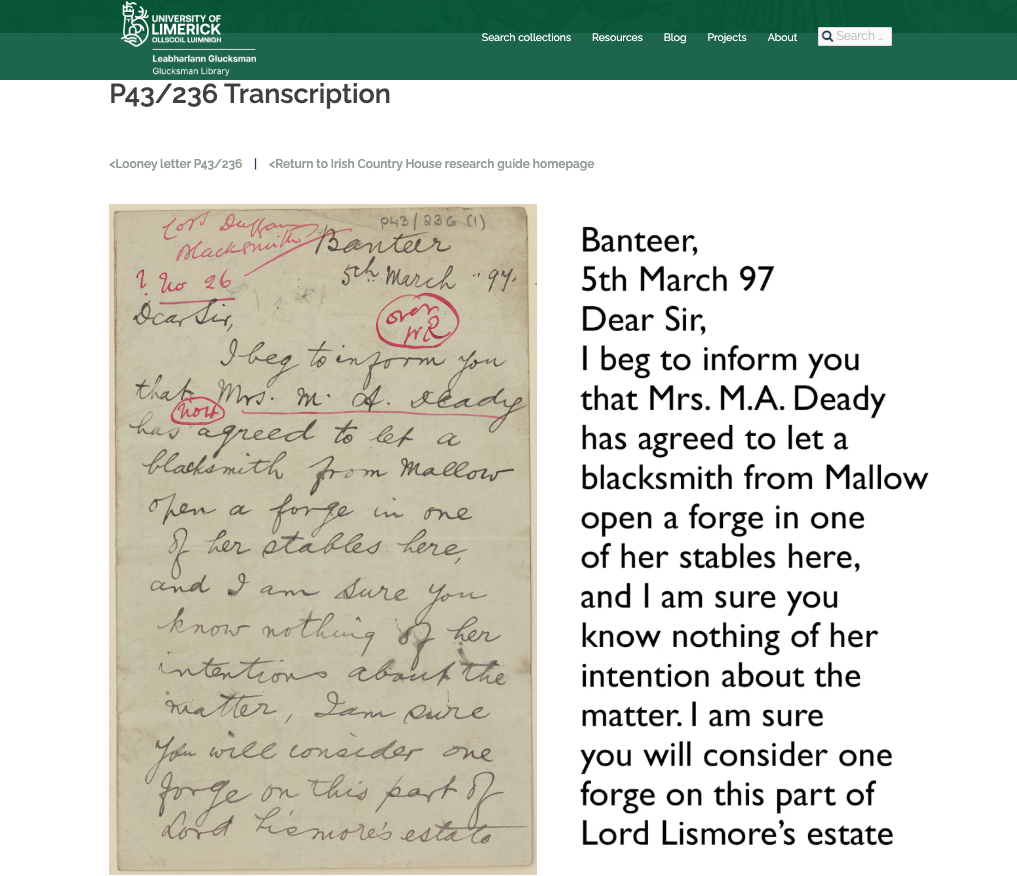 UNIVERSITY OF
LIMERICK
OLLSCOIL LUIMNIGH
Leabharlann Glucksman
Glucksman Library
Search collections Resources Blog Projects About Search ...
P43/236 Transcription
<Looney letter P43/236 | <Return to Irish Country House research guide homepage
P43/236 (1)
Lord
Blacksmith
Banteer
5th March "97.
? No 26
Dear Sir,
over
I beg to inform you
that Mrs. M. A. Deady
has agreed to let a
blacksmith from Mallow
open a forge in one
of her stables here,
and I am sure you
know nothing of her
intentions about the
matter, I am sure
you will consider one
forge on this part of
Lord Lismore's estate
Banteer,
5th March 97
Dear Sir,
I beg to inform you
that Mrs. M.A. Deady
has agreed to let a
blacksmith from Mallow
open a forge in one
of her stables here,
and I am sure you
know nothing of her
intention about the
matter. I am sure
you will consider one
forge on this part of
Lord Lismore's estate